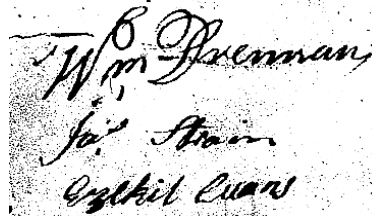 Wm Drennan
Jas Strain
Ezekil Evans